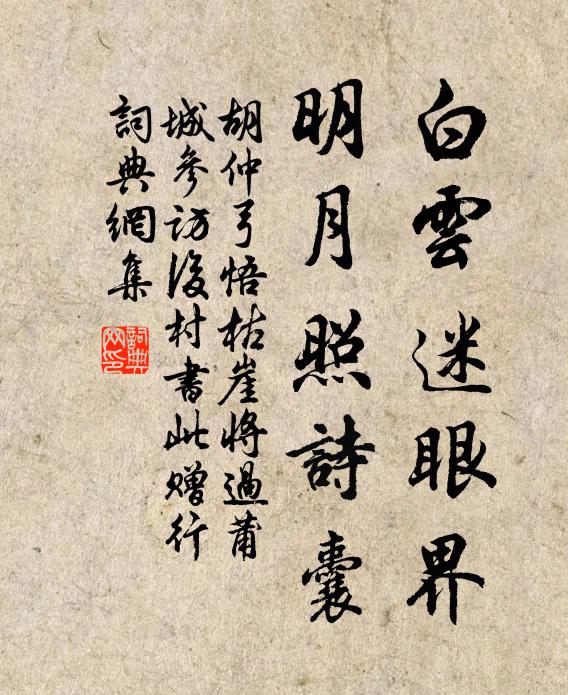 白雲迷眼界
明月照詩囊
胡仲弓悟枯崖將過莆
城參訪後村書此贈行
詞典網集
詞典
网印